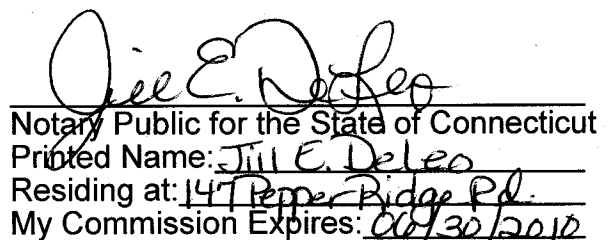 Jill E. DeLeo
Notary Public for the State of Connecticut
Printed Name: Jill E. DeLeo
Residing at: 147 Pepper Ridge Rd.
My Commission Expires: 06/30/2010